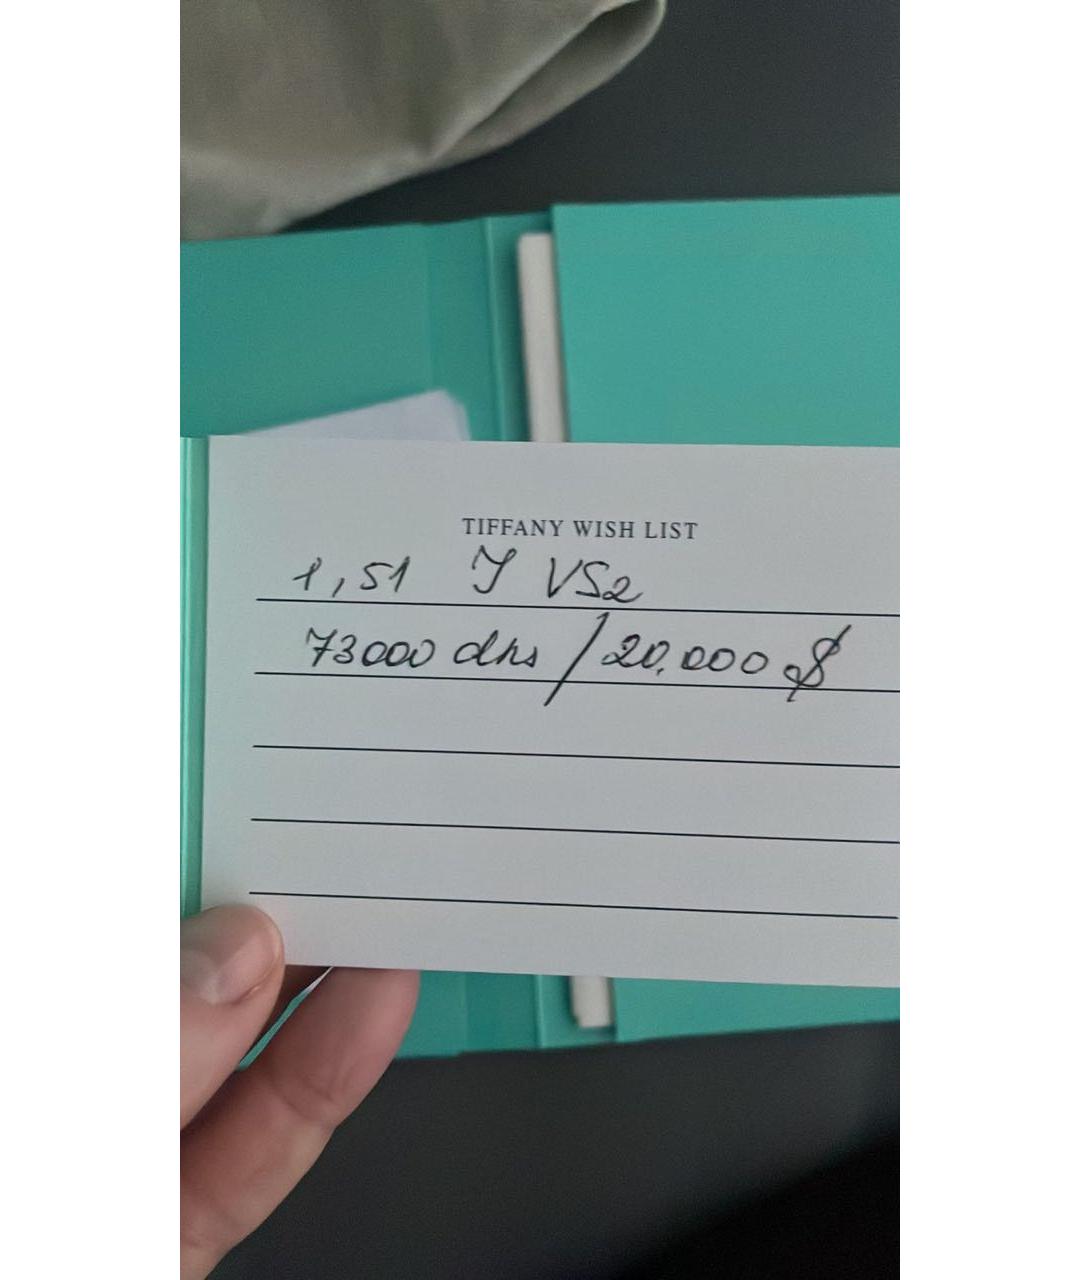 TIFFANY WISH LIST
1,51 J VS2
73000 dhs / 20,000 $